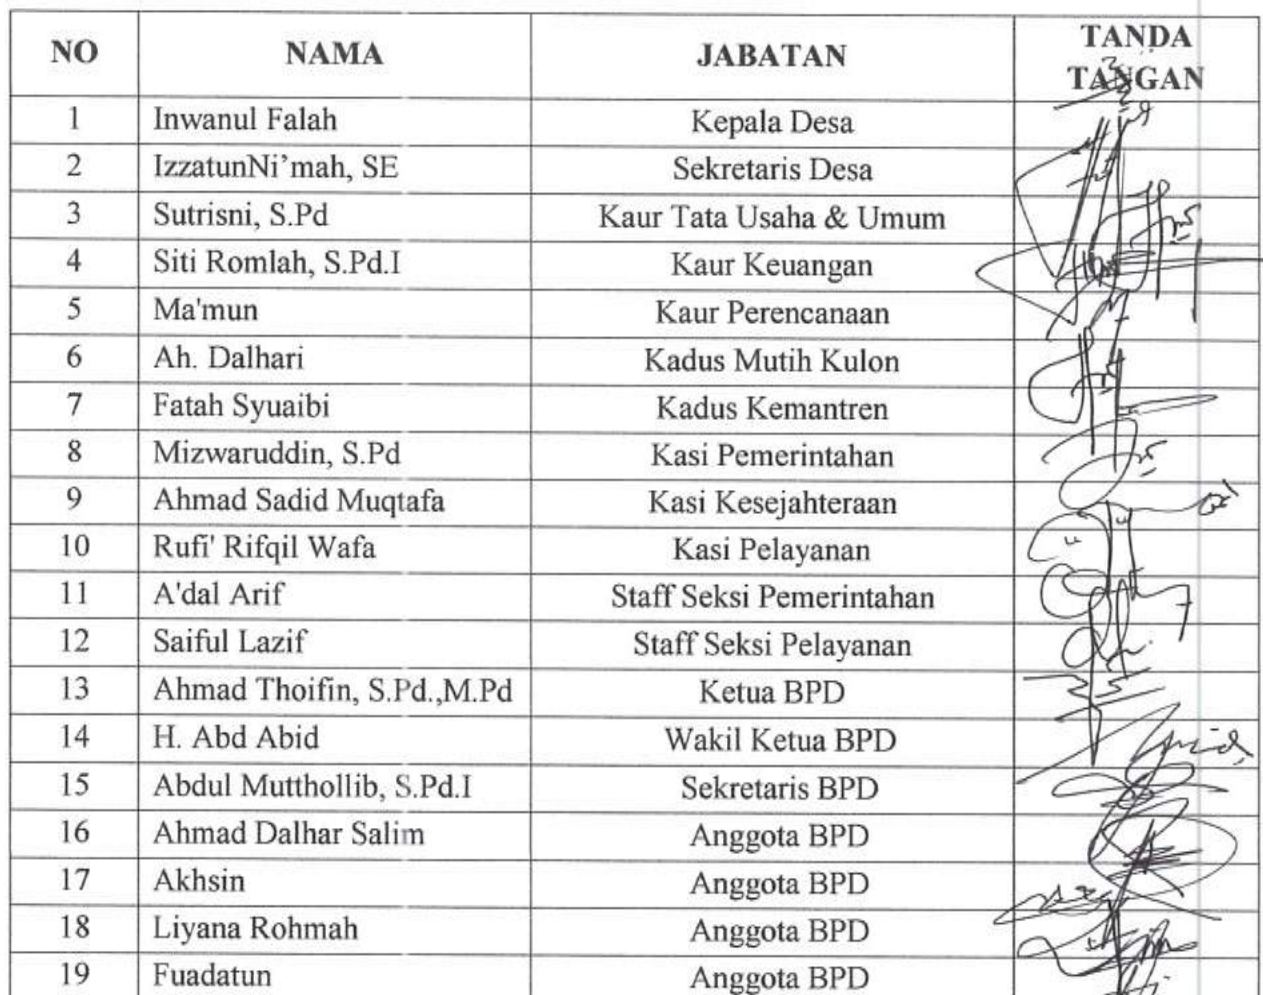 NO NAMA JABATAN TANDA
TANGAN
1 Inwanul Falah Kepala Desa
2 IzzatunNi’mah, SE Sekretaris Desa
3 Sutrisni, S.Pd Kaur Tata Usaha & Umum
4 Siti Romlah, S.Pd.I Kaur Keuangan
5 Ma'mun Kaur Perencanaan
6 Ah. Dalhari Kadus Mutih Kulon
7 Fatah Syuaibi Kadus Kemantren
8 Mizwaruddin, S.Pd Kasi Pemerintahan
9 Ahmad Sadid Muqtafa Kasi Kesejahteraan
10 Rufi' Rifqil Wafa Kasi Pelayanan
11 A'dal Arif Staff Seksi Pemerintahan
12 Saiful Lazif Staff Seksi Pelayanan
13 Ahmad Thoifin, S.Pd.,M.Pd Ketua BPD
14 H. Abd Abid Wakil Ketua BPD
15 Abdul Mutthollib, S.Pd.I Sekretaris BPD
16 Ahmad Dalhar Salim Anggota BPD
17 Akhsin Anggota BPD
18 Liyana Rohmah Anggota BPD
19 Fuadatun Anggota BPD